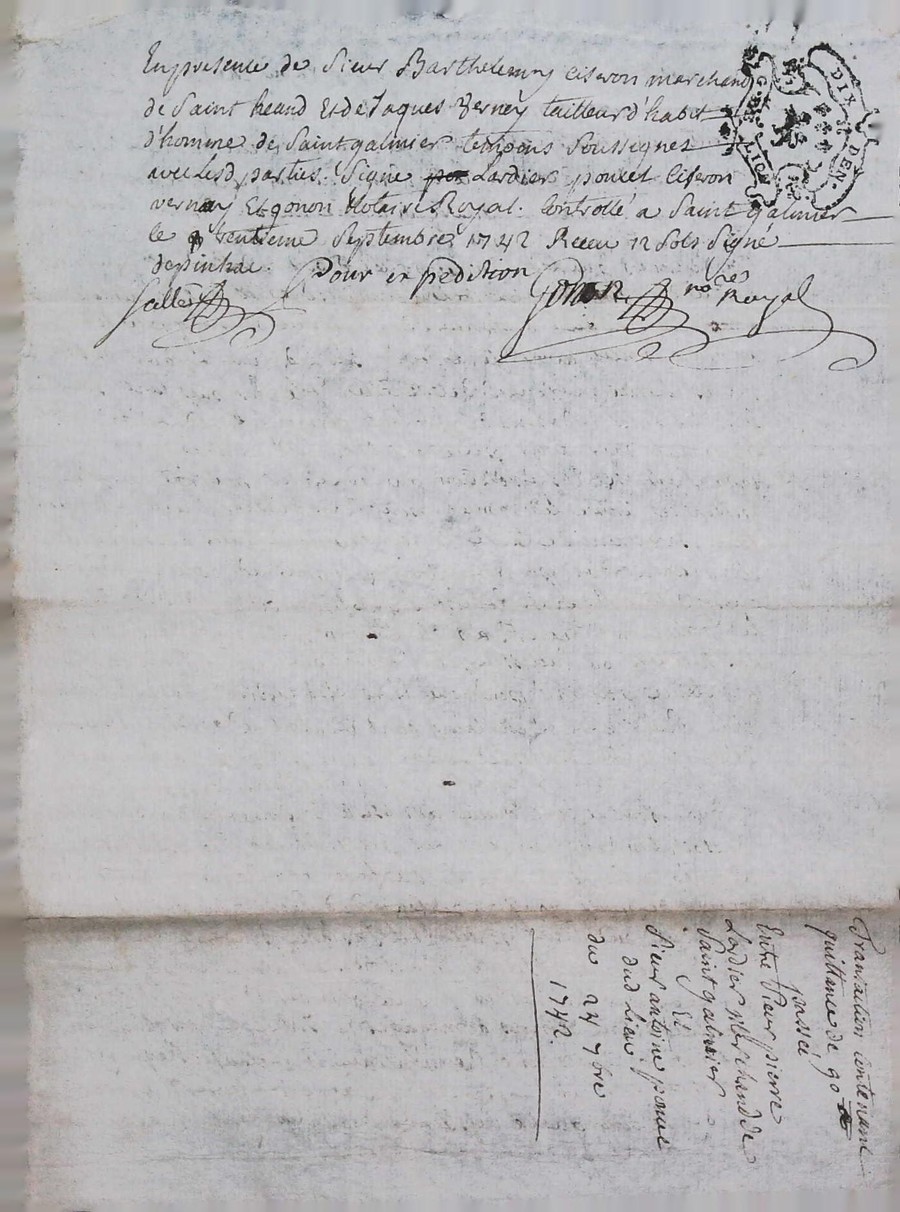 En presence de Sieur Barthelemy Ciseron marchand
de Saint heand Et de Jaques Verney tailleur d'habit
d'homme de Saint galmier temoins Soussignes
avec Lesd parties. Signé Lardier poncet Ciseron
verney Et gonon Notaire Royal. Controllé a Saint galmier
le trentieme Septembre 1742 Receu 12 Sols Signé
depinhac.
Pour expedition
Gonon no.re Royal
DIX DEN.
Transaction contenant
quittance de 90 ₶
passée
Entre Sieur pierre
Lardier Marchand de
Saint galmier
Et
Sieur antoine poncet
dud lieu
du 24 7bre
1742.